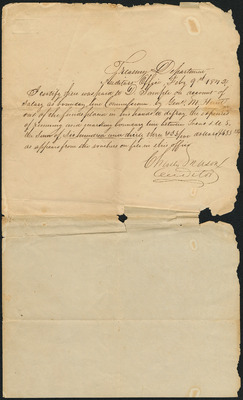 Treasury Department
Auditors Office Feby 9th 1842
I certify there was paid to D. Sample on account of
salary as boundary line Commissioner by Genl. M. Hunt
out of the funds placed in his hands to defray the expenses
of running and marking boundary line between Texas & U. S.
the sum of hundred and thirty three dollars
as appears from the vouchers on file in this office
Charles Mason
Auditor